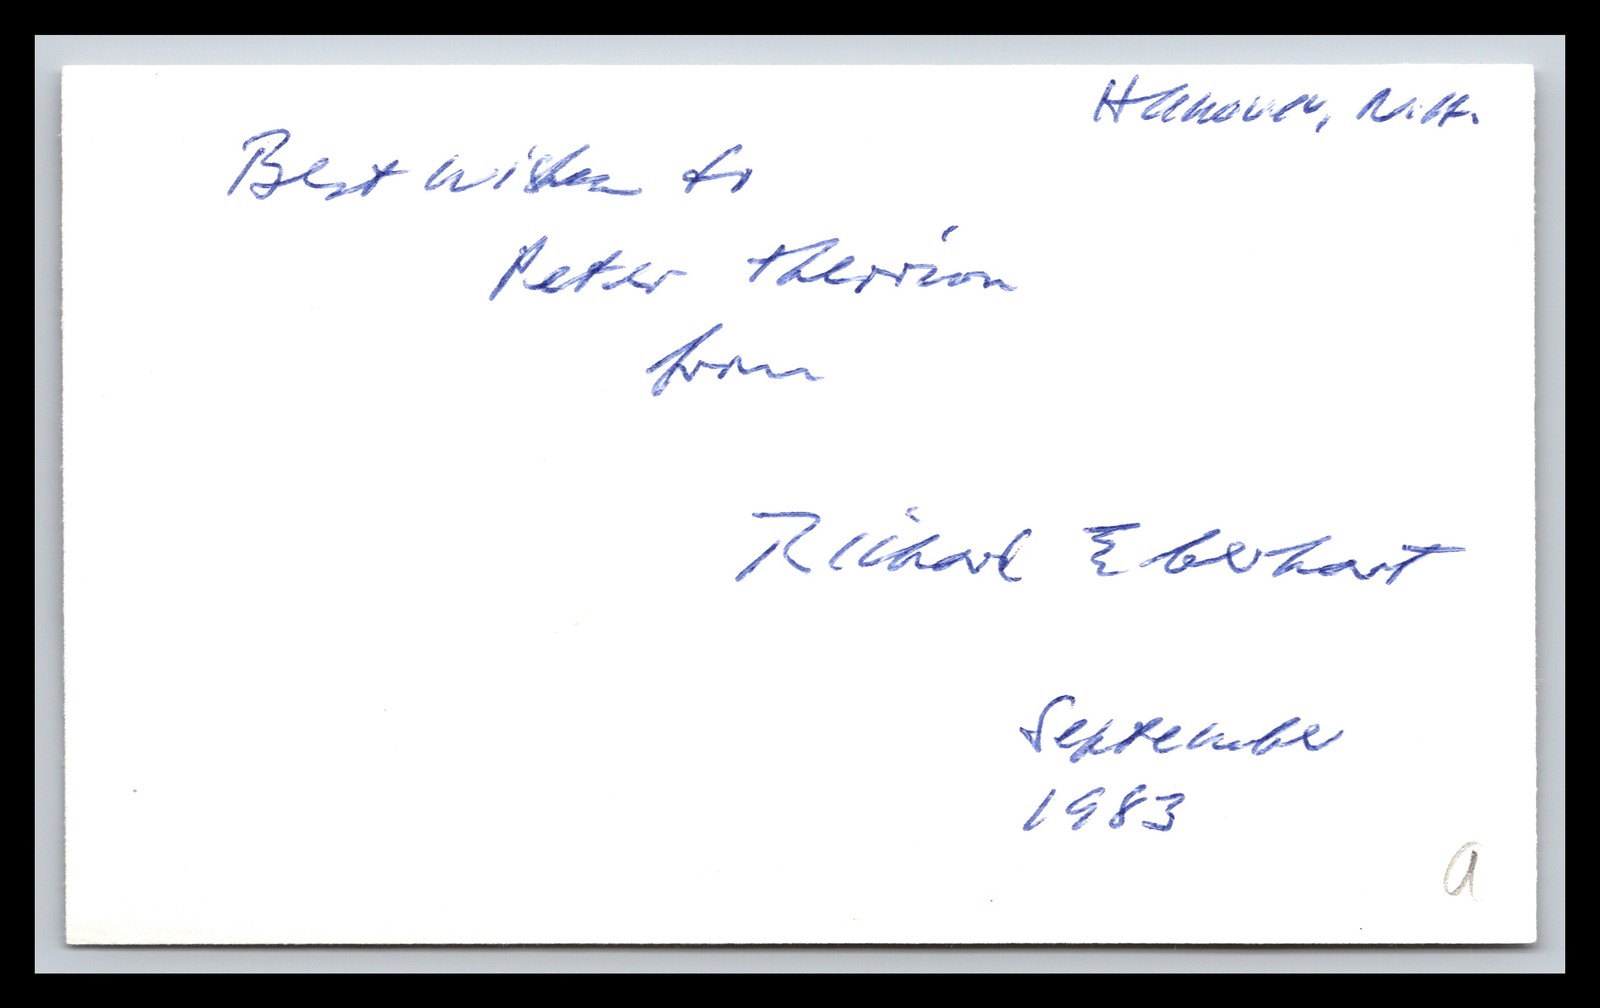 Hanover, N.H.
Best wishes to
Peter Therrion
from
Richard Eberhart
September
1983
a